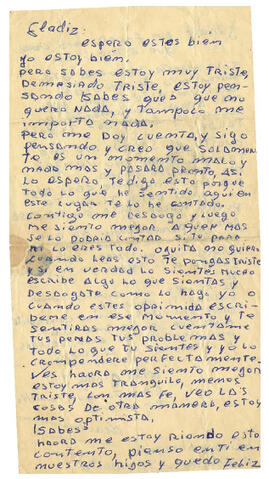 Eladiz:
espero estes bien
yo estoy bien.
pero sabes estoy muy triste,
demasiado triste, estoy pen-
sando ¿sabes que? que no
quero nada, y tampoco me
importa nada.
pero me doy cuenta, y sigo
pensando y creo que solamen
te es un momento malo y
nada mas y pasara pronto, asi
lo espero, te digo esto porque
todo lo que he sentido aqui en
este lugar te lo he contado.
contigo me desaogo y luego
me siento mejor. a quien mas
se lo podria contar si te para
mi lo eres todo.
cuando leas esto te pongas triste
y si en verdad lo sientes mucho
escribe algo lo que sientas y
desaogate como lo hago yo o
cuando estes oprimida escri-
beme en ese momento y te
sentiras mejor cuentame
tus penas tus problemas y
todo lo que tu sientes y yo lo
cromprendere perfectamente.
ves haora me siento mejor
estoy mas tranquilo, menos
triste, con mas fe, veo las
cosas de otra manera, estoy
mas optimista,
¿sabes?
haora me estoy riendo esto
contento, pienso en ti en
nuestros hijos y quedo feliz